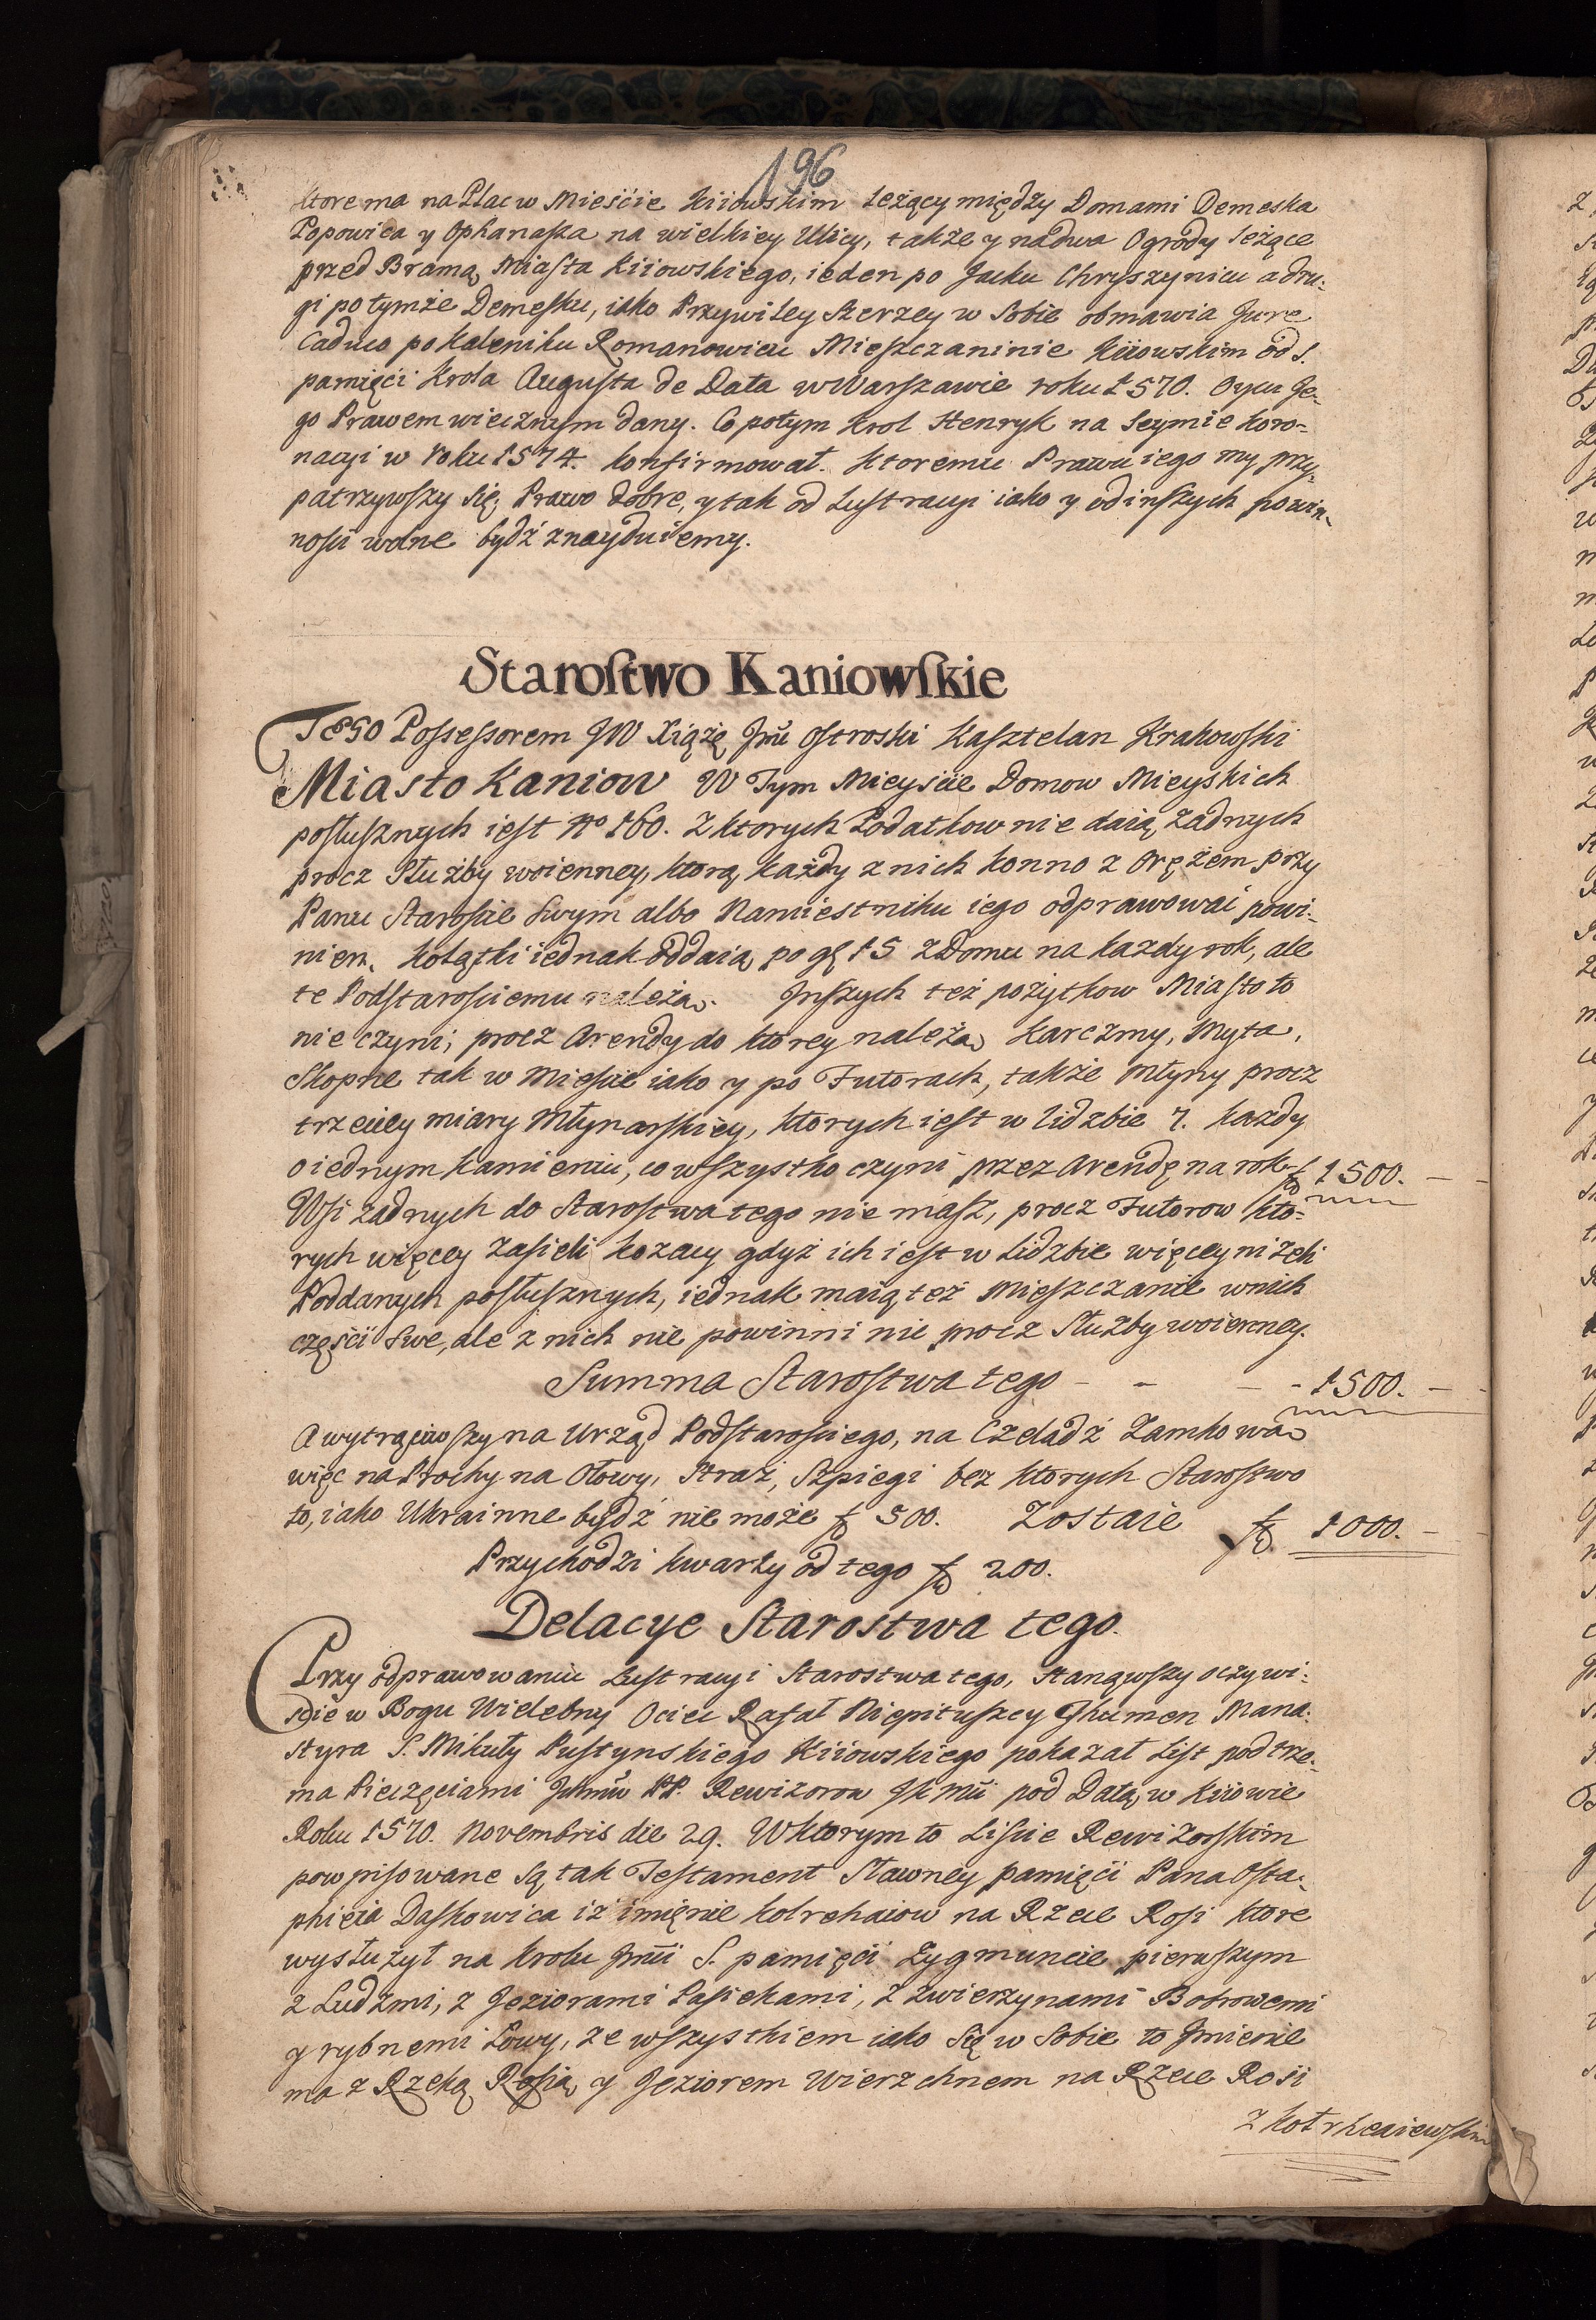 196
ktore ma na Plac w Mieście Kiiowskim leżący między Domami Demeska
Popowica y Ophanasza na wielkiey Ulicy, także y na dwa Ogrody leżące
przed Bramą Miasta Kiiowskiego, ieden po Jacku Chryszynicu a dru-
gi po tymże Demesku, iako Przywiley szerzey w sobie obmawia Jure
Caduco po Kaleniku Romanowicu Mieszczaninie Kiiowskim od S.
pamięci Krola Augusta de Data w Warszawie roku 1570. Oycu Je-
go Prawem wiecznym dany. Co potym Krol Henryk na Seymie Koro-
nacyi w roku 1574. konfirmował. Ktoremu Prawu iego my przy-
patrzywszy się, Prawo dobre, y tak od Lustracyi iako y od inszych powin-
nosci wolne bydź znayduiemy.
Starostwo Kaniowskie
Tego Possessorem JW Xiążę Jmć Ostroski Kasztelan Krakowski
Miasto Kaniow W Tym Mieyscie Domow Mieyskich
posłusznych iest No 160. Z ktorych Podatkow nie daią żadnych
procz Służby woienney, ktorą każdy z nich konno z Orężem przy
Panu Staroscie swym albo Namiestniku iego odprawować powi-
nien. Kolątki iednak oddaią po gł 15 z Domu na każdy rok, ale
te Podstarosciemu należą. Inszych też pożytkow Miasto to
nie czyni, procz Arendy do ktorey należą Karczmy, Myta,
Skopne tak w Miescie iako y po Futorach, także Młyny procz
trzeciey miary Młynarskiey, ktorych iest w lidzbie 7. każdy
o iednym kamieniu, co wszystko czyni przez Arendę na rok fł 1500.
Wsi żadnych do Starostwa tego nie masz, procz Futorow kto-
rych więcey zasieli Kozacy gdyż ich iest w Lidzbie więcey niżeli
Poddanych posłusznych, iednak maią też Mieszczanie w nich
części swe, ale z nich nie powinni nic procz Służby woienney.
Summa Starostwa tego - - - - 1500.
A wytrąciwszy na Urząd Podstarosciego, na Czeladź Zamkową
więc na Prochy na Ołowy, Straż, Szpiegi bez ktorych Starostwo
to, iako Ukrainne bydź nie może fł 500. Zostaie fł 1000.
Przychodzi kwarty od tego fł 200.
Delacye Starostwa tego.
Przy odprawowaniu Lustracyi Starostwa tego, stanąwszy oczywi-
scie w Bogu Wielebny Ociec Rafał Niepituszcy Jhumen Mana-
styra S. Mikuły Pustynskiego Kiiowskiego pokazał List pod trze-
ma Pieczęciami Ichmw PP. Rewizorow JK Mći pod Datą w Kiiowie
Roku 1570. Novembris die 29. W ktorym to Liscie Rewizorskim
powpisowane są tak Testament Sławney pamięci Pana Osta-
phieia Daskowica iż imięnie Kotrehaiow na Rzece Rosi ktore
wysłużył na Krolu Jmći S. pamięci Zygmuncie pierwszym
z Ludźmi, z Jeziorami Pasiekami, z zwierzynami Bobrowemi
y rybnemi Łowy, ze wszystkiem iako się w sobie to Jmienie
ma z Rzeką Rosią y Jeziorem Wierzchnem na Rzece Rosi
z Kotrheaiewskim